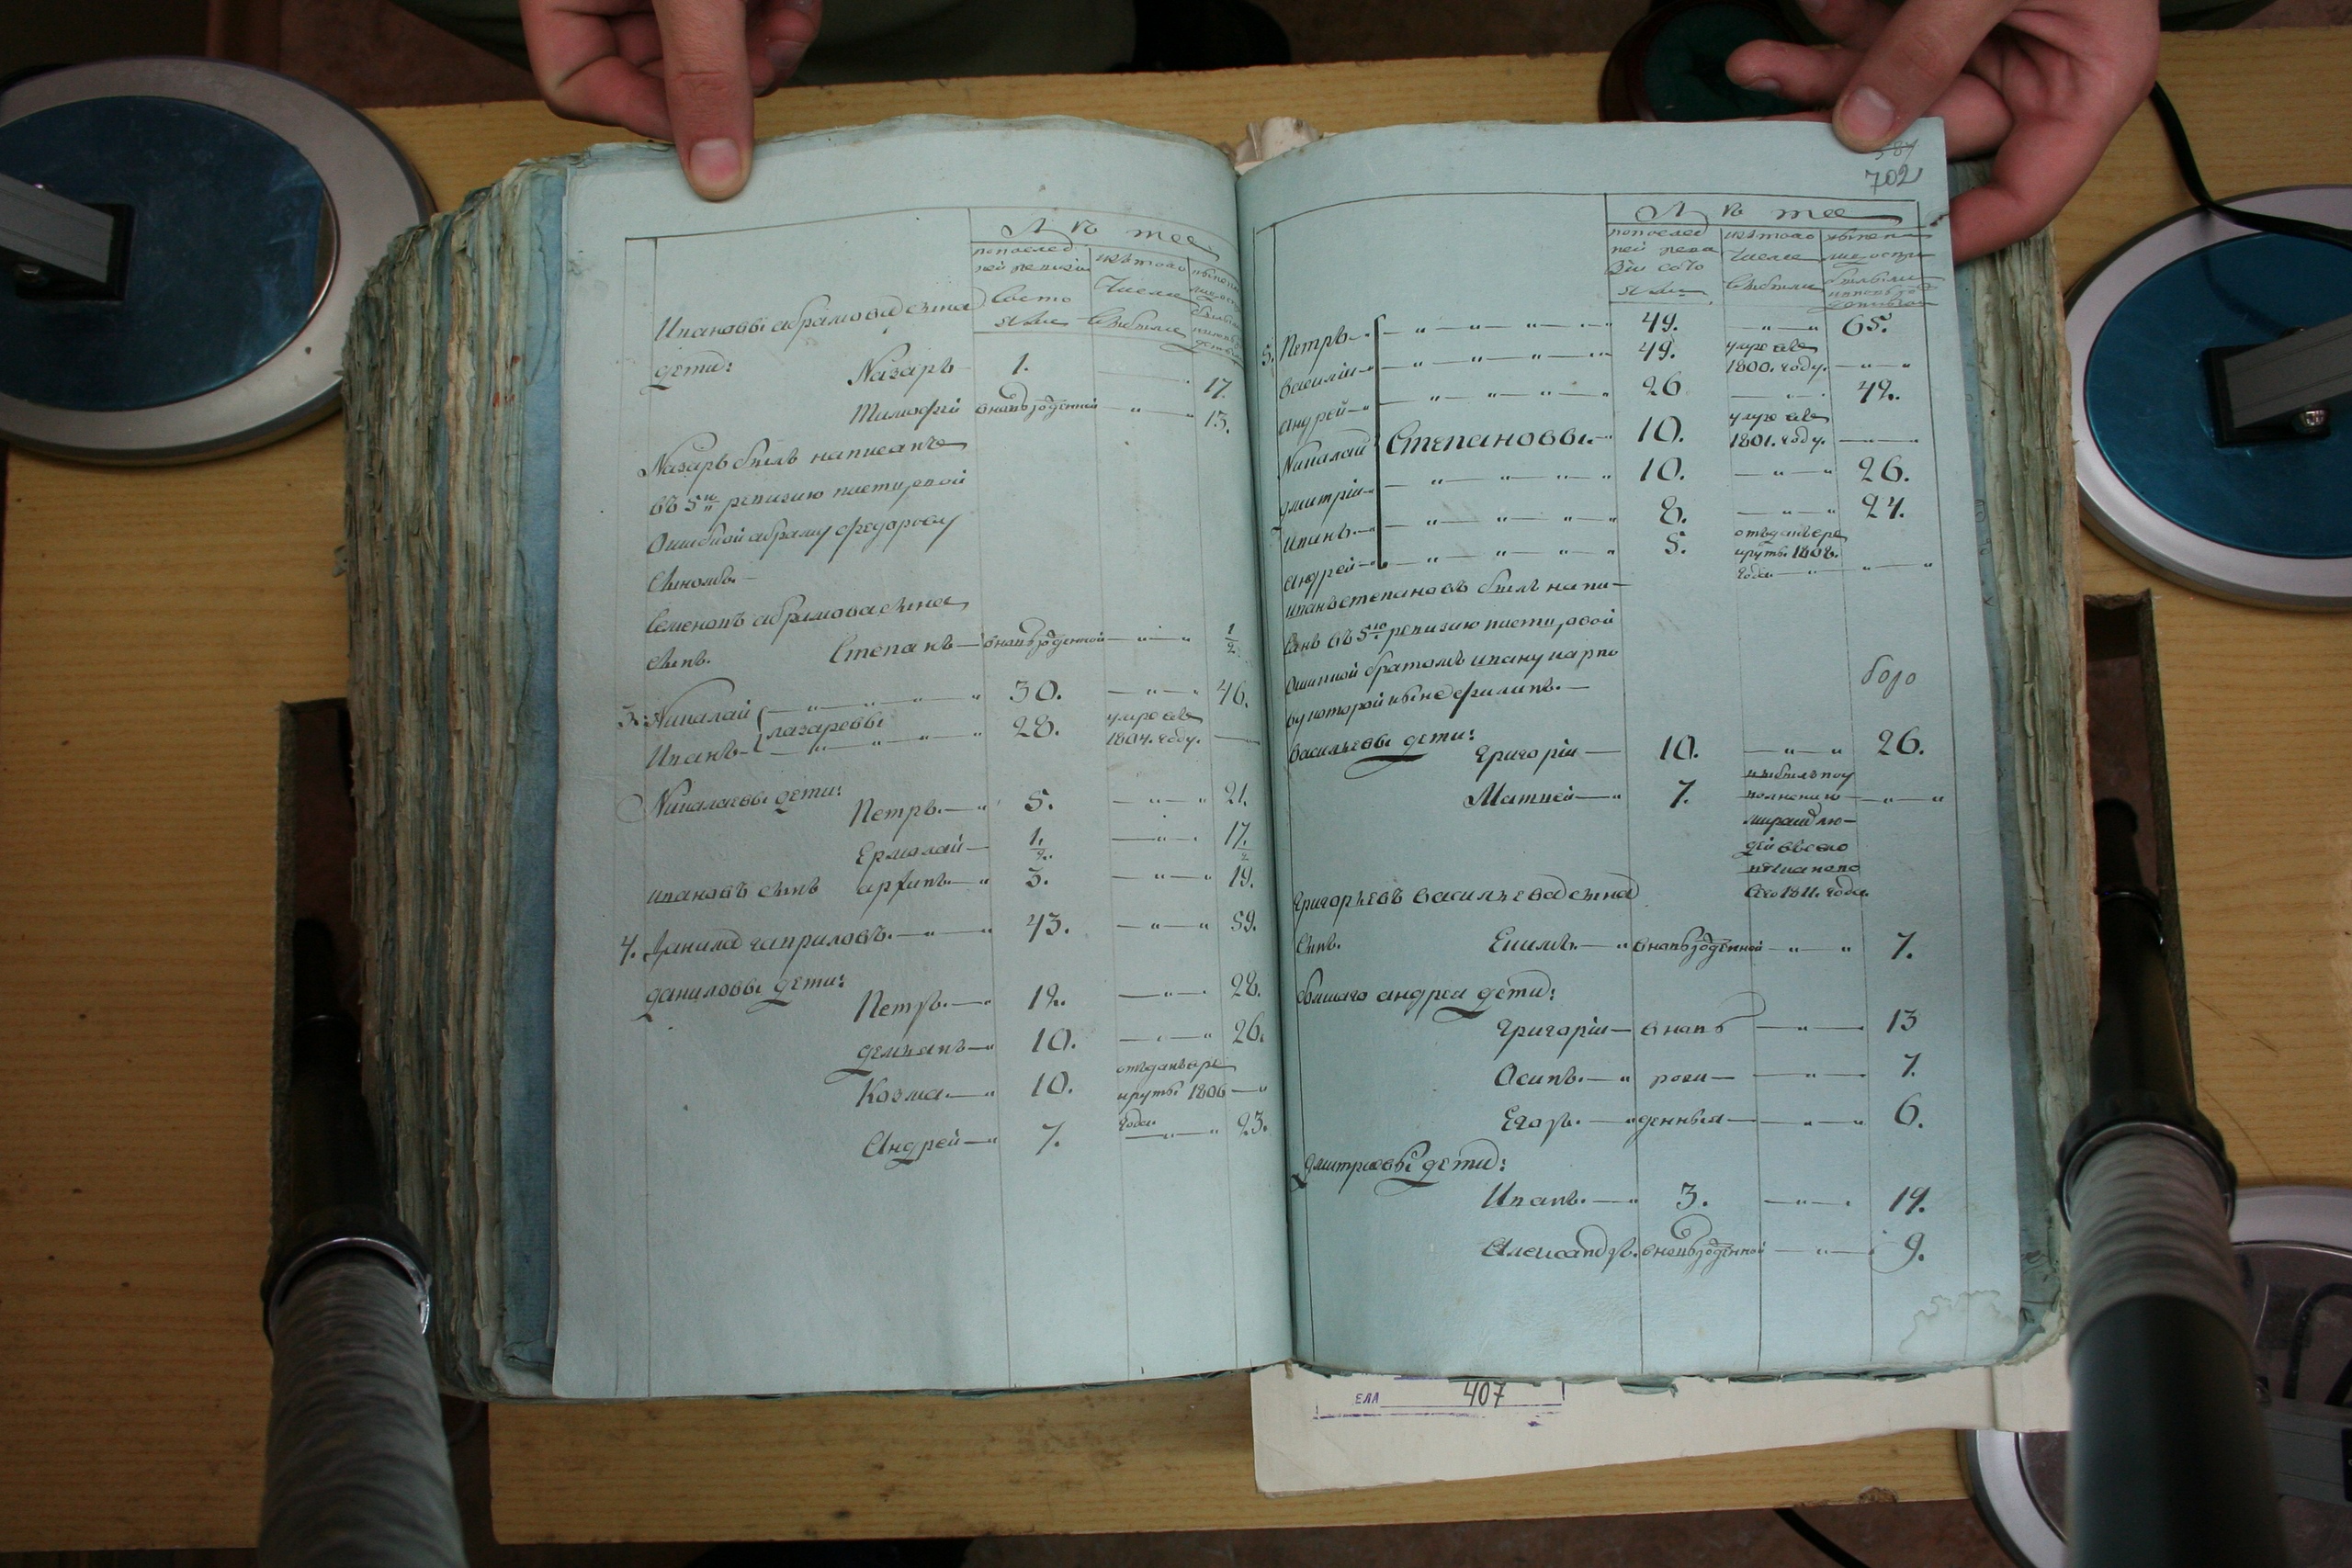 Лѣта
по послед
ней ревизіи
состо
яли
изъ того
числа
выбыли
Ивановы абрамова сына
дети:
Назаръ 1. 17.
Тимофей вновьрожденной 13.
Назаръ былъ написанъ
въ 5ю ревизію писцовой
ошибкой абраму федорову
сыномъ.
Семеновъ абрамова сына
сынъ. Степанъ вновьрожденной 1/2
3. Николай лазаревы 30. 46.
Иванъ 28. умре въ
1804. году.
Николаевы дети:
Петръ. 5. 21.
Ермолай 1/2. 17 1/2
ивановъ сынъ архипъ. 3. 19.
4. Данила гавриловъ. 43. 59.
даниловы дети:
Петръ. 12. 28.
демьянъ 10. 26.
Козма. 10. отданъ в ре
круты 1806
года.
Андрей 7. 23.
587
702
Лѣта
по послед
ней реви
зіи состо
яли
изъ того
числа
выбыли
5. Петръ 49. 65.
василій 49. умре въ
1800. году.
андрей 26 42.
Николай Степановы. 10. умре въ
1801. году.
дмитрій 10. 26.
иванъ 8. 24.
андрей 5. отданъ в ре
круты. 1808.
года
иванъ степановъ былъ напи
санъ въ 5ю ревизію писцовой
ошибкой братомъ ивану карпо
ву которой ныне филипъ.
Васильевы дети:
Григорій 10. 26.
Матвей 7.
Григорьевъ васильева сына
сынъ. Ефимъ. вновьрожденной 7.
большаго андрея дети:
Григорій вновь 13
Осипъ. рож 7.
Егоръ. денныя 6.
дмитриевы дети:
Иванъ. 3. 19.
Александръ. вновьрожденной 9.
407